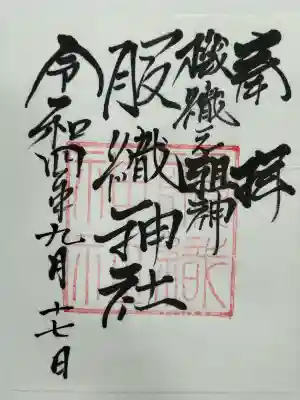 奉拝
機織之祖神
服織神社
令和四年九月十七日